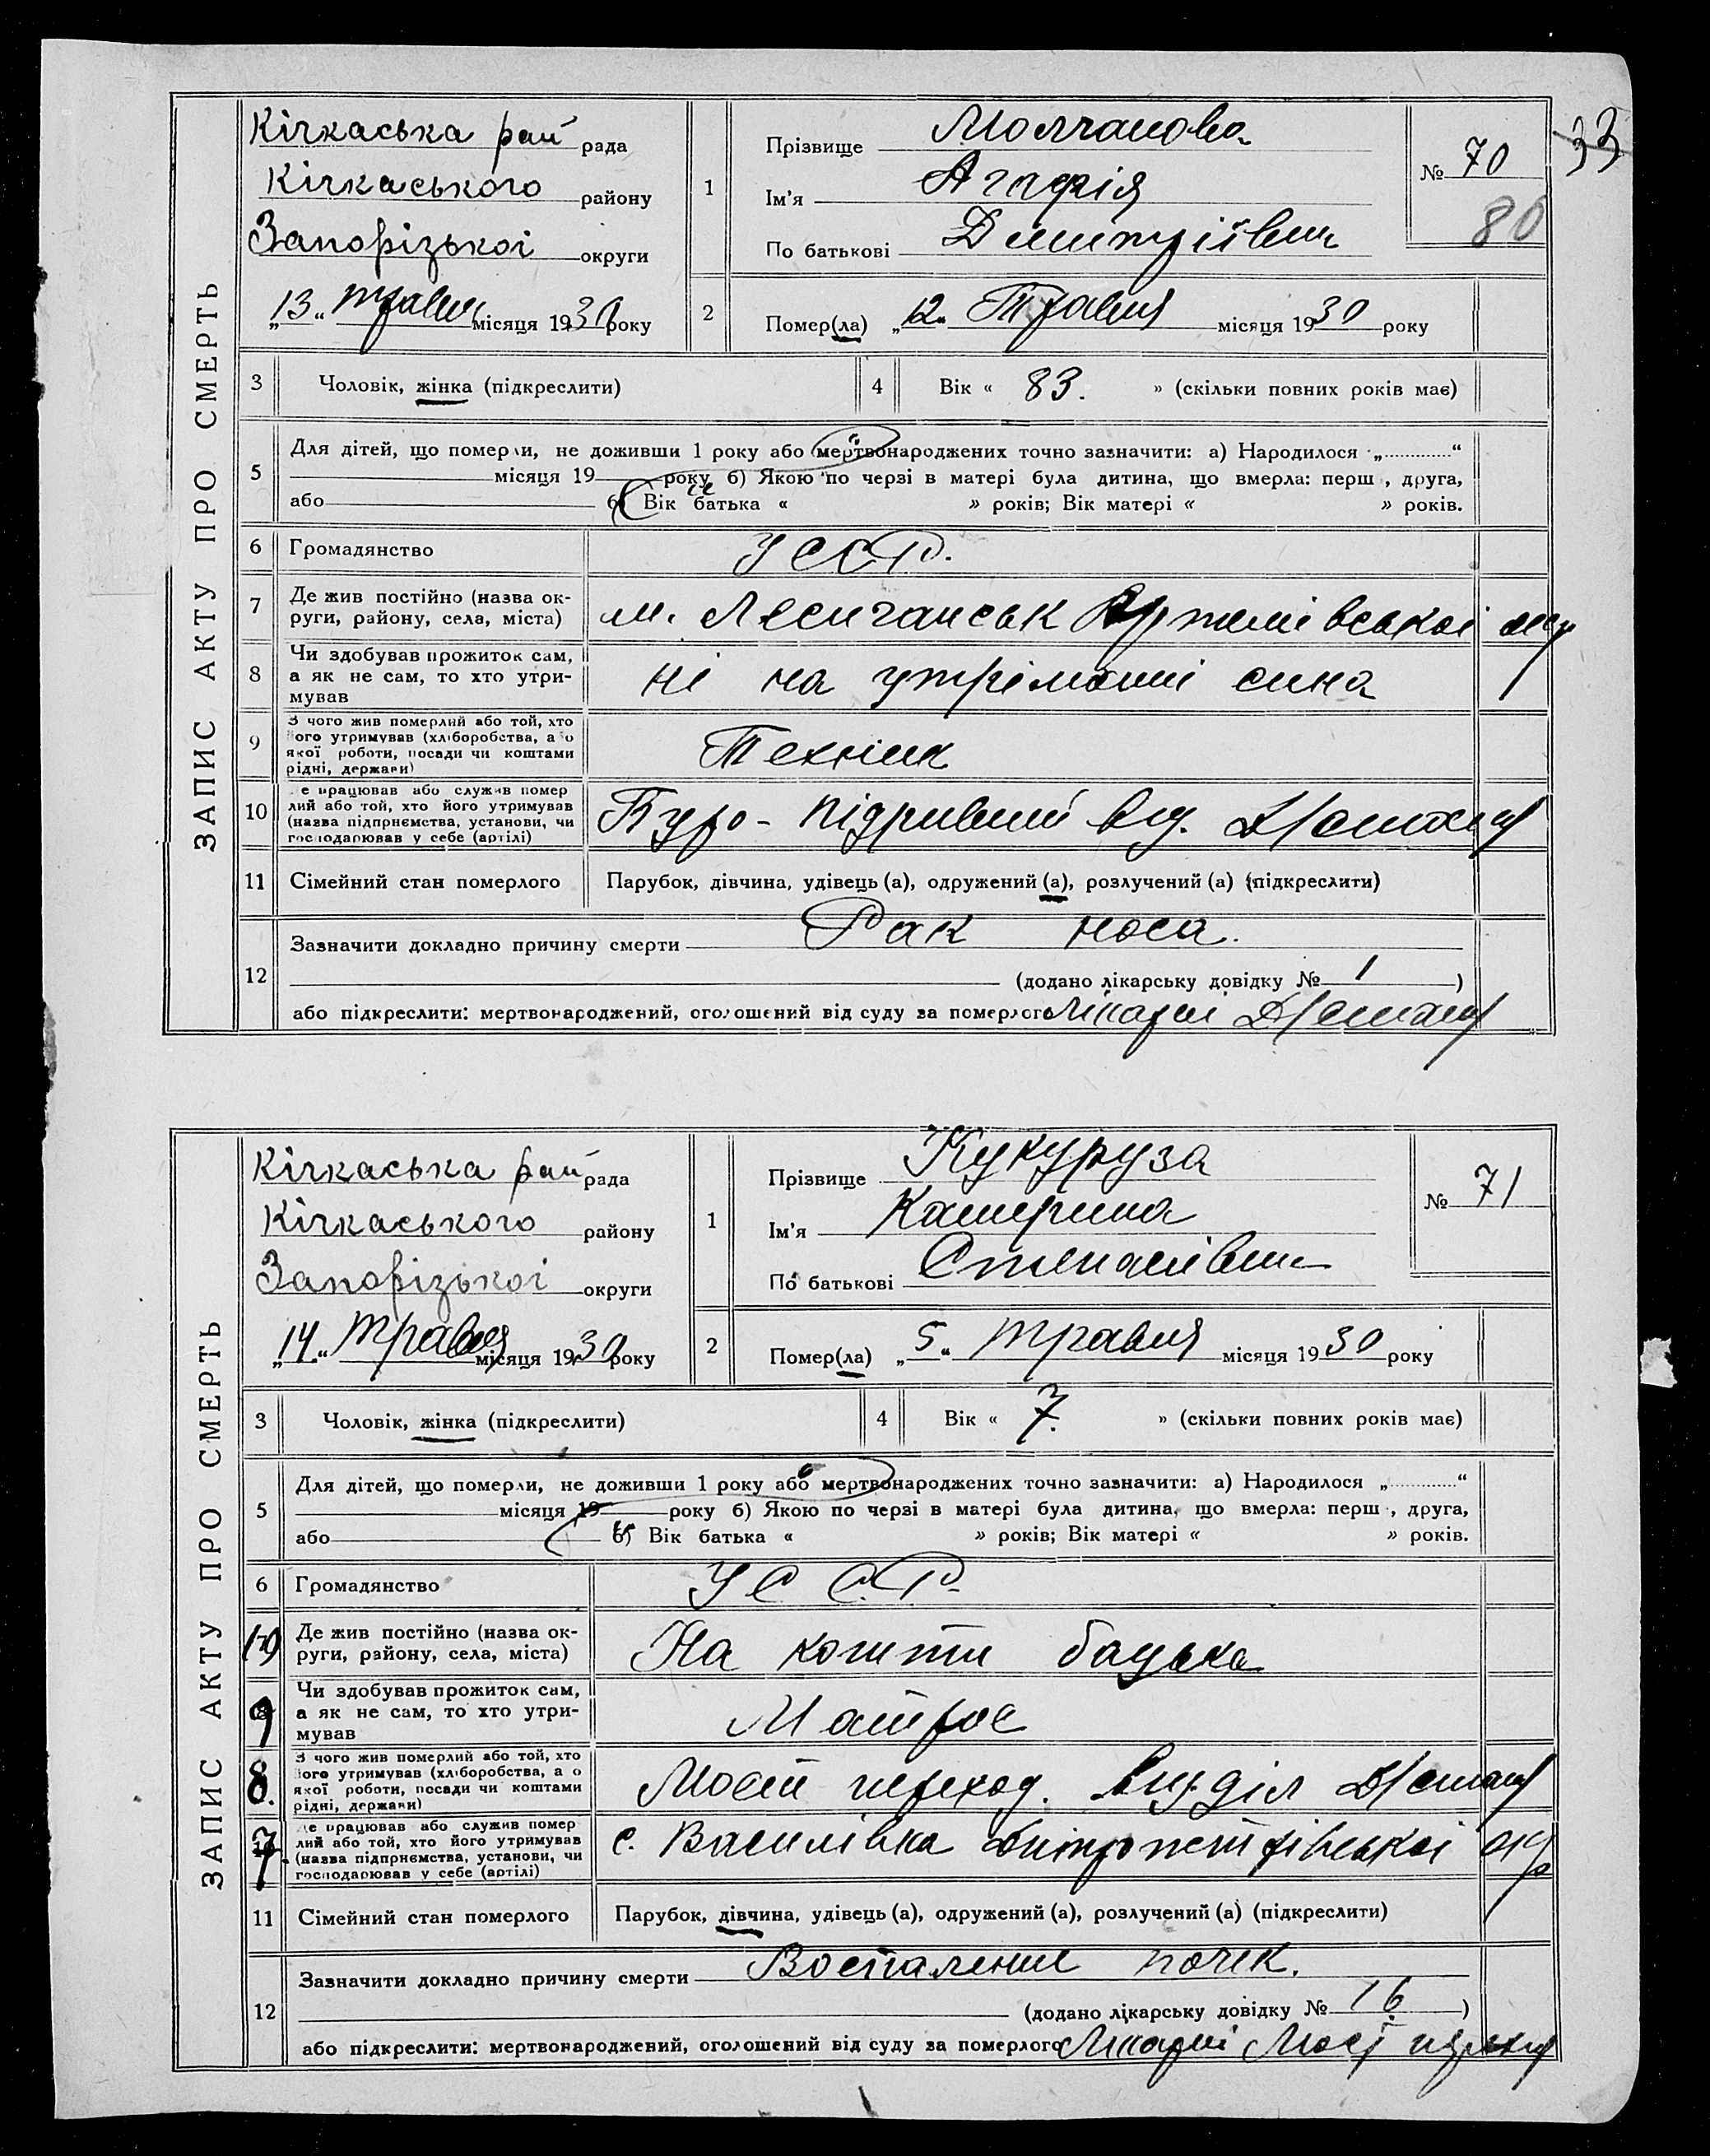 33
ЗАПИС АКТУ ПРО СМЕРТЬ
Кічкаська рай рада
Кічкаського району
Запорізької округи
„13“ травня місяця 1930 року
1
Прізвище Молчанова
Ім'я Агафія
По батькові Дмитріївна
№ 70
80
2
Помер(ла) „12“ Травня місяця 1930 року
3 Чоловік, жінка (підкреслити)
4 Вік « 83. » (скільки повних років має)
5
Для дітей, що померли, не доживши 1 року або мертвонароджених точно зазначити: а) Народилося „............“
місяця 19 року б) Якою по черзі в матері була дитина, що вмерла: перш , друга,
або в) Вік батька « » років; Вік матері « » років.
6 Громадянство УССР.
7 Де жив постійно (назва ок-
руги, району, села, міста)
м. Лесичанськ Артемівської окр
8 Чи здобував прожиток сам,
а як не сам, то хто утри-
мував
ні на утріманні сина
9 З чого жив померлий або той, хто
його утримував (хліборобства, або
якої роботи, посади чи коштами
рідні, держави)
Технік
10 Де працював або служив помер
лий або той, хто його утримував
(назва підприємства, установи, чи
господарював у себе (артілі)
Буро- підривний від.
11 Сімейний стан померлого Парубок, дівчина, удівець (а), одружений (а), розлучений (а) (підкреслити)
12
Зазначити докладно причину смерти Рак носа.
(додано лікарську довідку № 1 )
або підкреслити: мертвонароджений, оголошений від суду за померлого Лікарні
ЗАПИС АКТУ ПРО СМЕРТЬ
Кічкаська рай рада
Кічкаського району
Запорізької округи
„14.“ травня місяця 1930 року
1
Прізвище Кукуруза
Ім'я Катерина
По батькові Степанівна
№ 71
2
Помер(ла) „5“ травня місяця 1930 року
3 Чоловік, жінка (підкреслити)
4 Вік « 7. » (скільки повних років має)
5
Для дітей, що померли, не доживши 1 року або мертвонароджених точно зазначити: а) Народилося „............“
місяця 19 року б) Якою по черзі в матері була дитина, що вмерла: перш , друга,
або в) Вік батька « » років; Вік матері « » років.
6 Громадянство УССР.
10 Де жив постійно (назва ок-
руги, району, села, міста)
На кошти батька
9 Чи здобував прожиток сам,
а як не сам, то хто утри-
мував
Матрос
8. З чого жив померлий або той, хто
його утримував (хліборобства, а о
якої роботи, посади чи коштами
рідні, держави)
Мост переход.
7. Де працював або служив помер
лий або той, хто його утримував
(назва підприємства, установи, чи
господарював у себе (артілі)
с. Василівка Дніпропетрівської окр
11 Сімейний стан померлого Парубок, дівчина, удівець (а), одружений (а), розлучений (а) (підкреслити)
12
Зазначити докладно причину смерти Воспаление почек.
(додано лікарську довідку № 16 )
або підкреслити: мертвонароджений, оголошений від суду за померлого Лікарні Мост